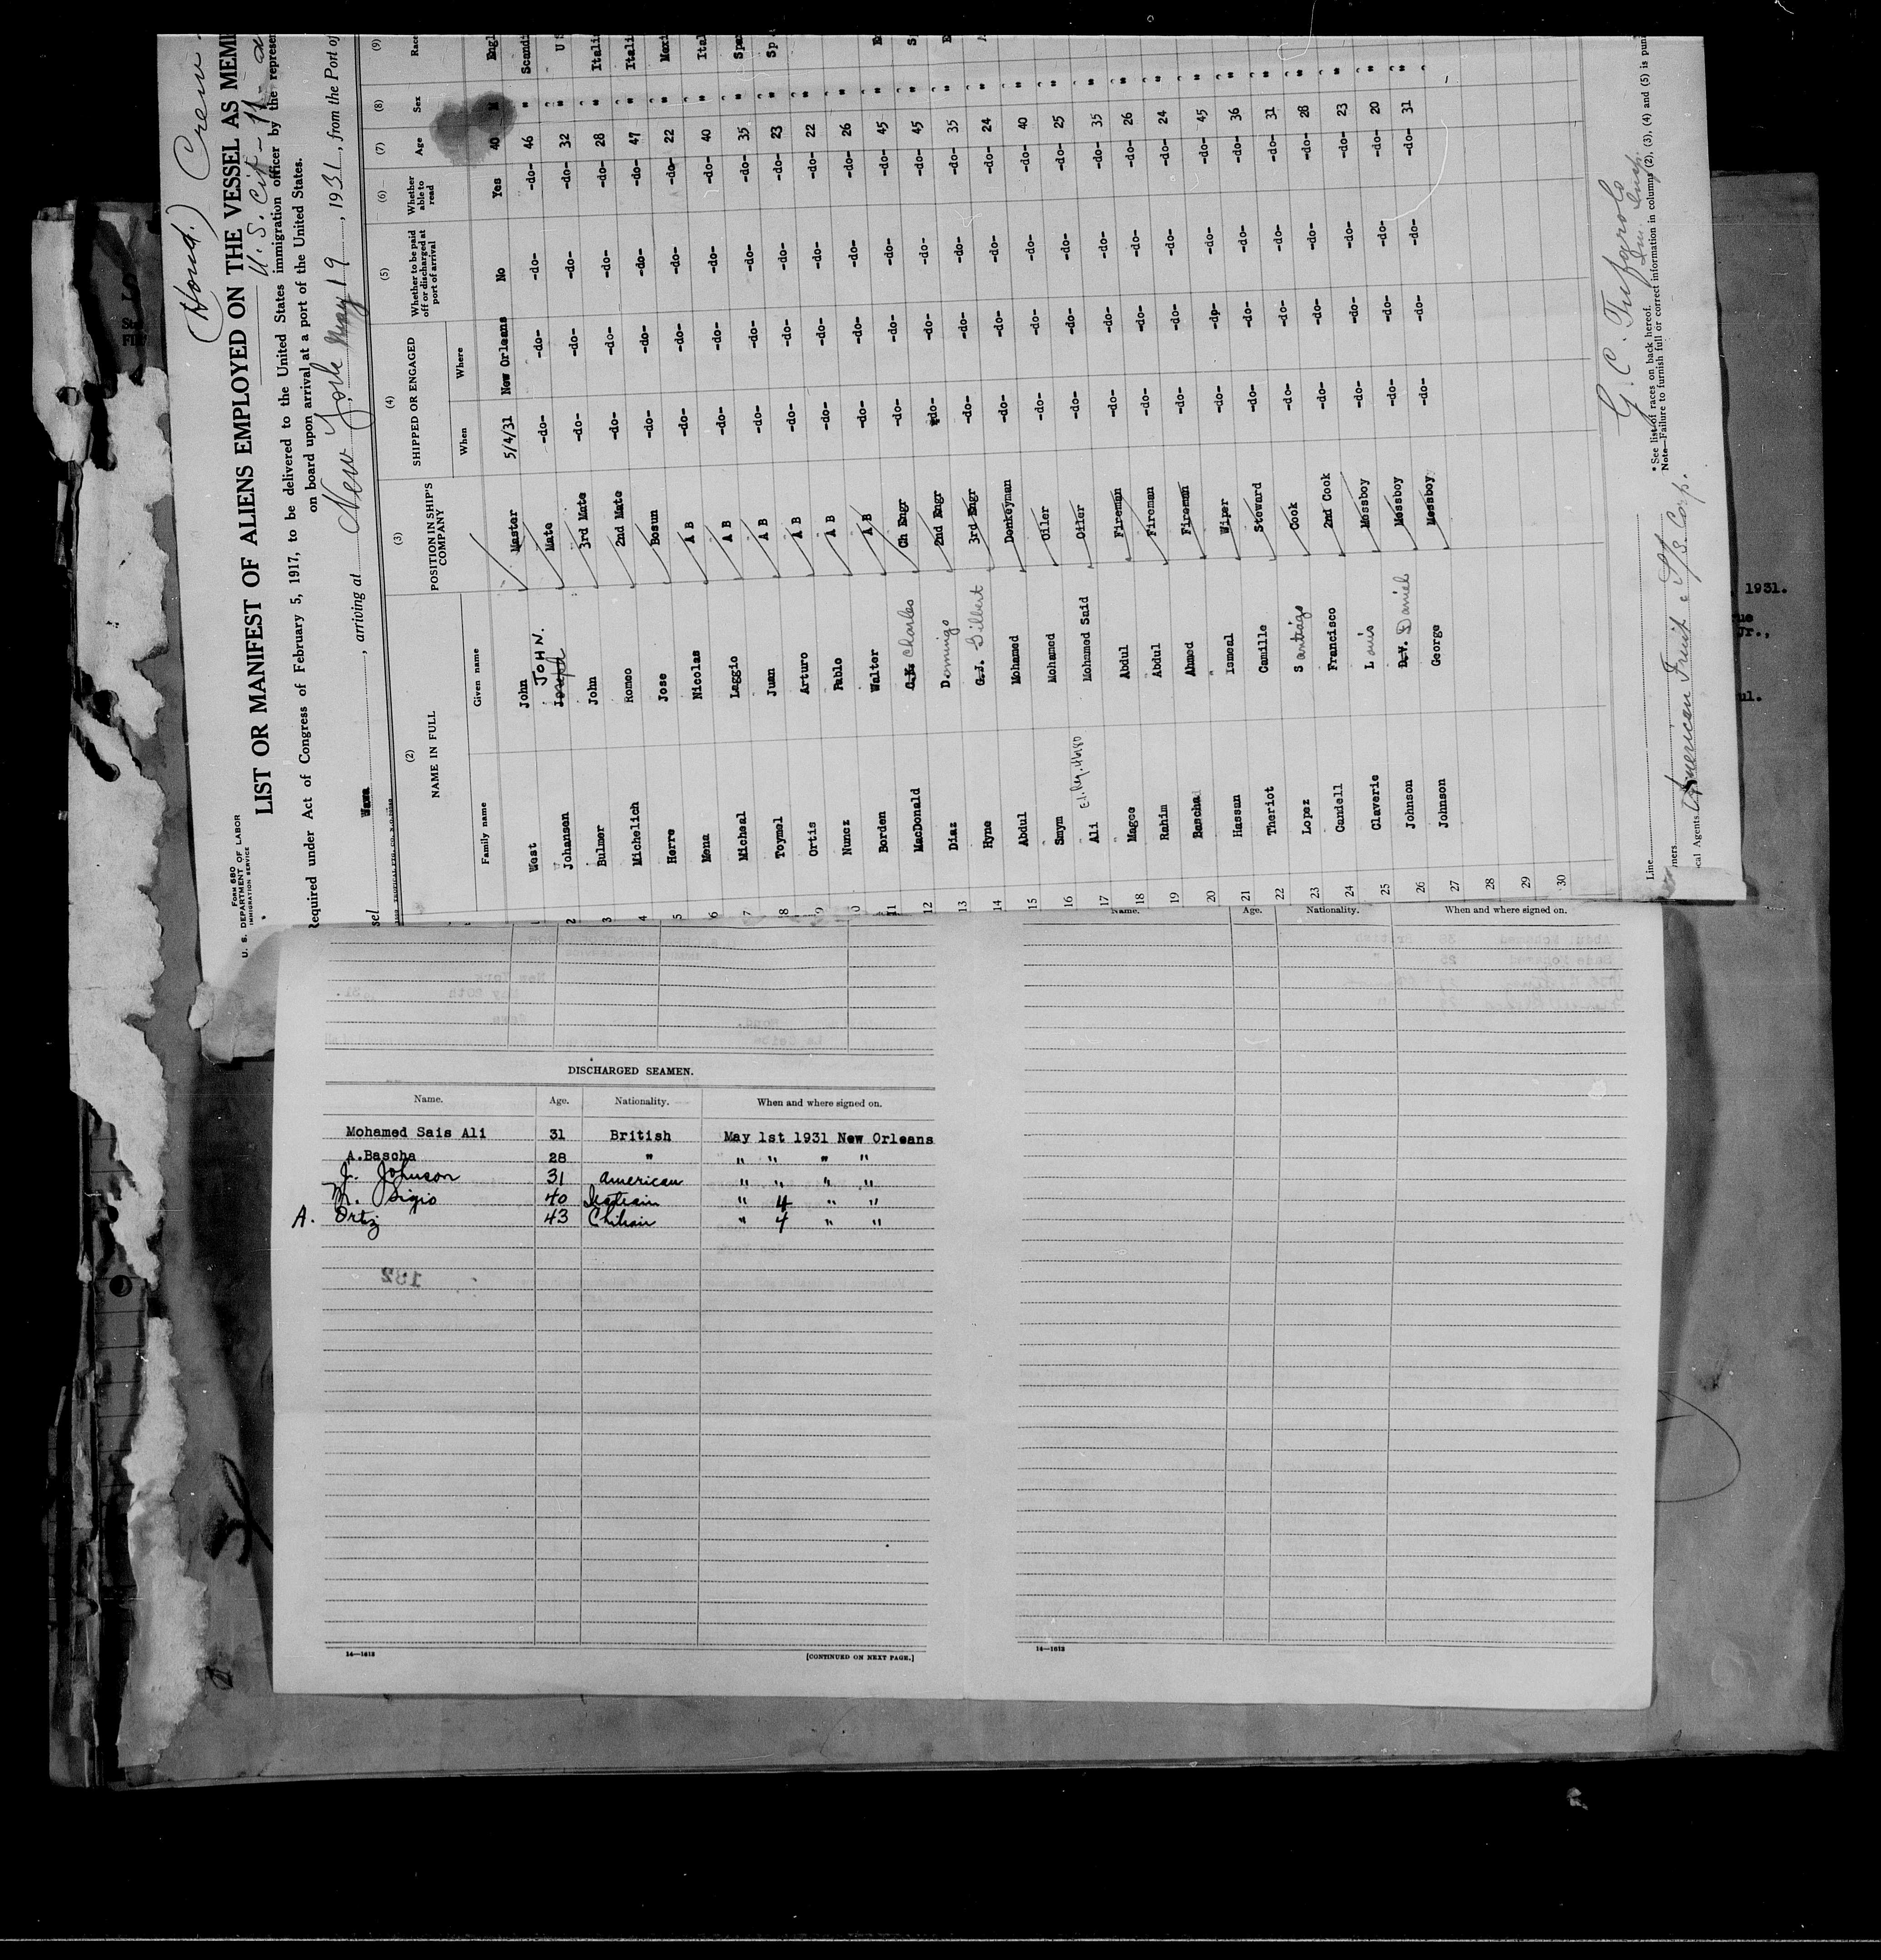 (Hond.) Crew
FORM 680
U. S. DEPARTMENT OF LABOR
IMMIGRATION SERVICE
LIST OR MANIFEST OF ALIENS EMPLOYED ON THE VESSEL AS MEM
U.S. Cit - 11
Required under Act of Congress of February 5, 1917, to be delivered to the United States immigration officer by the represen
on board upon arrival at a port of the United States.
sel Wawa , arriving at New York May 19 , 1931 , from the Port of
(2) (3) (4) (5) (6) (7) (8) (9)
NAME IN FULL POSITION IN SHIP'S COMPANY SHIPPED OR ENGAGED Whether to be paid off or discharged at port of arrival Whether able to read Age Sex Race
Family name Given name When Where
1 West John Master 5/4/31 New Orleans No Yes 40 M Engl
2 Johansen Joseph JOHN. Mate -do- -do- -do- -do- 46 " Scandi
3 Bulmer John 3rd Mate -do- -do- -do- -do- 32 " U S
4 Michelich Romeo 2nd Mate -do- -do- -do- -do- 28 " Itali
5 Herre Jose Bosun -do- -do- -do- -do- 47 " Itali
6 Mena Nicolas A B -do- -do- -do- -do- 22 " Mexi
7 Micheal Laggio A B -do- -do- -do- -do- 40 " Ital
8 Toymel Juan A B -do- -do- -do- -do- 35 " Spa
9 Ortis Arturo A B -do- -do- -do- -do- 23 " Sp
10 Nunez Pablo A B -do- -do- -do- -do- 22 "
11 Borden Walter A B -do- -do- -do- -do- 26 "
12 MacDonald Charles Ch Engr -do- -do- -do- -do- 45 " E
13 Diaz Domingo 2nd Engr -do- -do- -do- -do- 45 " S
14 Hyne G.J. Gilbert 3rd Engr -do- -do- -do- -do- 35 " E
15 Abdul Mohamed Donkeyman -do- -do- -do- -do- 24 "
16 Smym Mohamed Oiler -do- -do- -do- -do- 40 "
17 Ali Mohamed Said Oiler -do- -do- -do- -do- 25 "
18 Magee Abdul Fireman -do- -do- -do- -do- 35 "
19 Rahim Abdul Fireman -do- -do- -do- -do- 26 "
20 Bascha Ahmed Fireman -do- -do- -do- -do- 24 "
21 Hassan Ismeal Wiper -do- -dp- -do- -do- 45 "
22 Theriot Camille Steward -do- -do- -do- -do- 36 "
23 Lopez Santiago Cook -do- -do- -do- -do- 31 "
24 Candell Francisco 2nd Cook -do- -do- -do- -do- 28 "
25 Claverie Louis Messboy -do- -do- -do- -do- 23 "
26 Johnson D.V. Daniel Messboy -do- -do- -do- -do- 20 "
27 Johnson George Messboy -do- -do- -do- -do- 31 "
28
29
30
Line
ners
cal Agents American Fruit & S/S Corp.
* See list of races on back hereof.
Note—Failure to furnish full or correct information in columns (2), (3), (4) and (5) is pun
1931.
Jr.,
Name. Age. Nationality. When and where signed on.
DISCHARGED SEAMEN.
Name. Age. Nationality. When and where signed on.
Mohamed Sais Ali 31 British May 1st 1931 New Orleans
A.Bascha 28 " " " " "
J. Johnson 31 American " " " "
M. 40 " 4 " "
A. Ortiz 43 Chilian " 4 " "
132
14—1613 [CONTINUED ON NEXT PAGE.]
14—1613